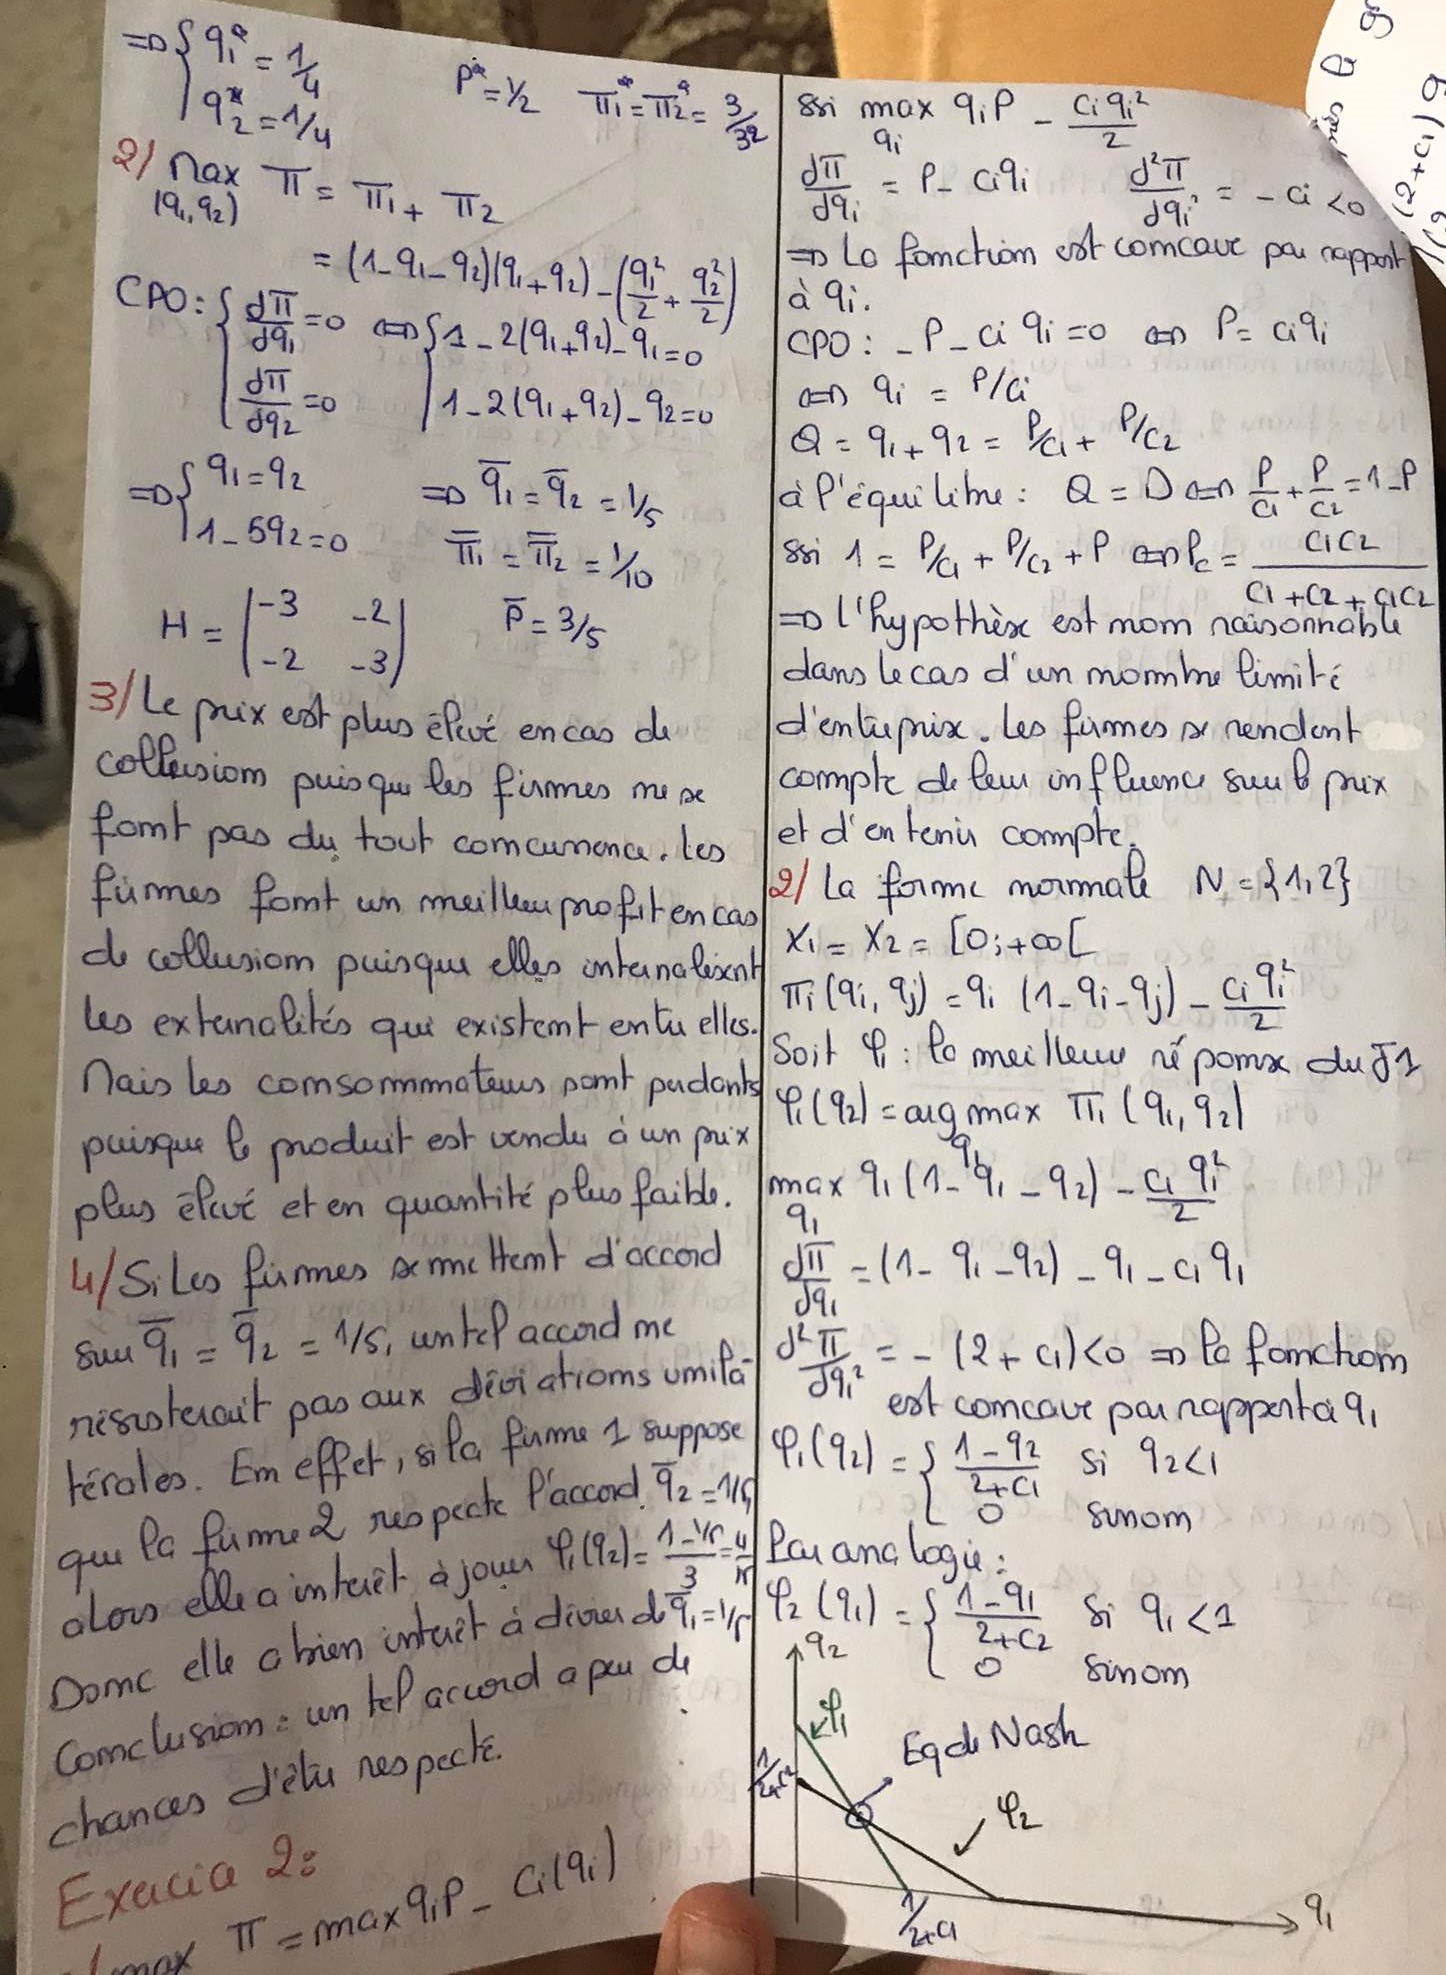 => { q1* = 1/4
q2* = 1/4
P* = 1/2 π1* = π2* = 3/32
2/ Max (q1, q2) π = π1 + π2
= (1-q1-q2)(q1+q2) - (q1²/2 + q2²/2)
CPO: { dπ/dq1 = 0 <=> { 1-2(q1+q2)-q1=0
dπ/dq2 = 0 1-2(q1+q2)-q2=0
=> { q1 = q2 => q̄1 = q̄2 = 1/5
1-5q2=0 π̄1 = π̄2 = 1/10
H = | -3 -2 | P̄ = 3/5
| -2 -3 |
3/ Le prix est plus élevé en cas de
collusion puisque les firmes ne se
font pas du tout concurrence. Les
firmes font un meilleur profit en cas
de collusion puisque elles internalisent
les externalités qui existent entre elles.
Mais les consommateurs sont perdants
puisque le produit est vendu à un prix
plus élevé et en quantité plus faible.
4/ Si Les firmes se mettent d'accord
sur q̄1 = q̄2 = 1/5, un tel accord ne
résisterait pas aux déviations unila-
térales. En effet, si la firme 1 suppose
que la firme 2 respecte l'accord q̄2 = 1/5,
alors elle a intérêt à jouer φ1(q2) = (1-1/5)/3 = 4/15
Donc elle a bien intérêt à dévier de q̄1 = 1/5
Conclusion: un tel accord a peu de
chances d'être respecté.
Exercice 2:
max π = max qiP - Ci(qi)
ssi max qi qiP - ciqi²/2
dπ/dqi = P - ciqi d²π/dqi² = -ci <0
=> La fonction est concave par rapport
à qi.
CPO: -P - ci qi = 0 <=> P = ciqi
<=> qi = P/ci
Q = q1 + q2 = P/c1 + P/c2
à l'équilibre: Q = D <=> P/c1 + P/c2 = 1-P
ssi 1 = P/c1 + P/c2 + P <=> Pc = c1c2/(c1+c2+c1c2)
=> l'hypothèse est non raisonnable
dans le cas d'un nombre limité
d'entreprise. Les firmes se rendent
compte de leur influence sur le prix
et d'en tenir compte.
2/ La forme normale N = {1,2}
X1 = X2 = [0;+∞[
πi(qi, qj) = qi (1-qi-qj) - ciqi²/2
Soit φ1: la meilleure réponse du J1
φ1(q2) = arg max q1 π1(q1, q2)
max q1 q1(1-q1-q2) - c1q1²/2
dπ/dq1 = (1-q1-q2) - q1 - c1q1
d²π/dq1² = -(2+c1)<0 => la fonction
est concave par rapport à q1
φ1(q2) = { (1-q2)/(2+c1) si q2<1
0 sinon
Par analogie:
φ2(q1) = { (1-q1)/(2+c2) si q1<1
0 sinon
q2
φ1
Eq de Nash
1/2+c2
φ2
q1
1/2+c1
(2+c1)